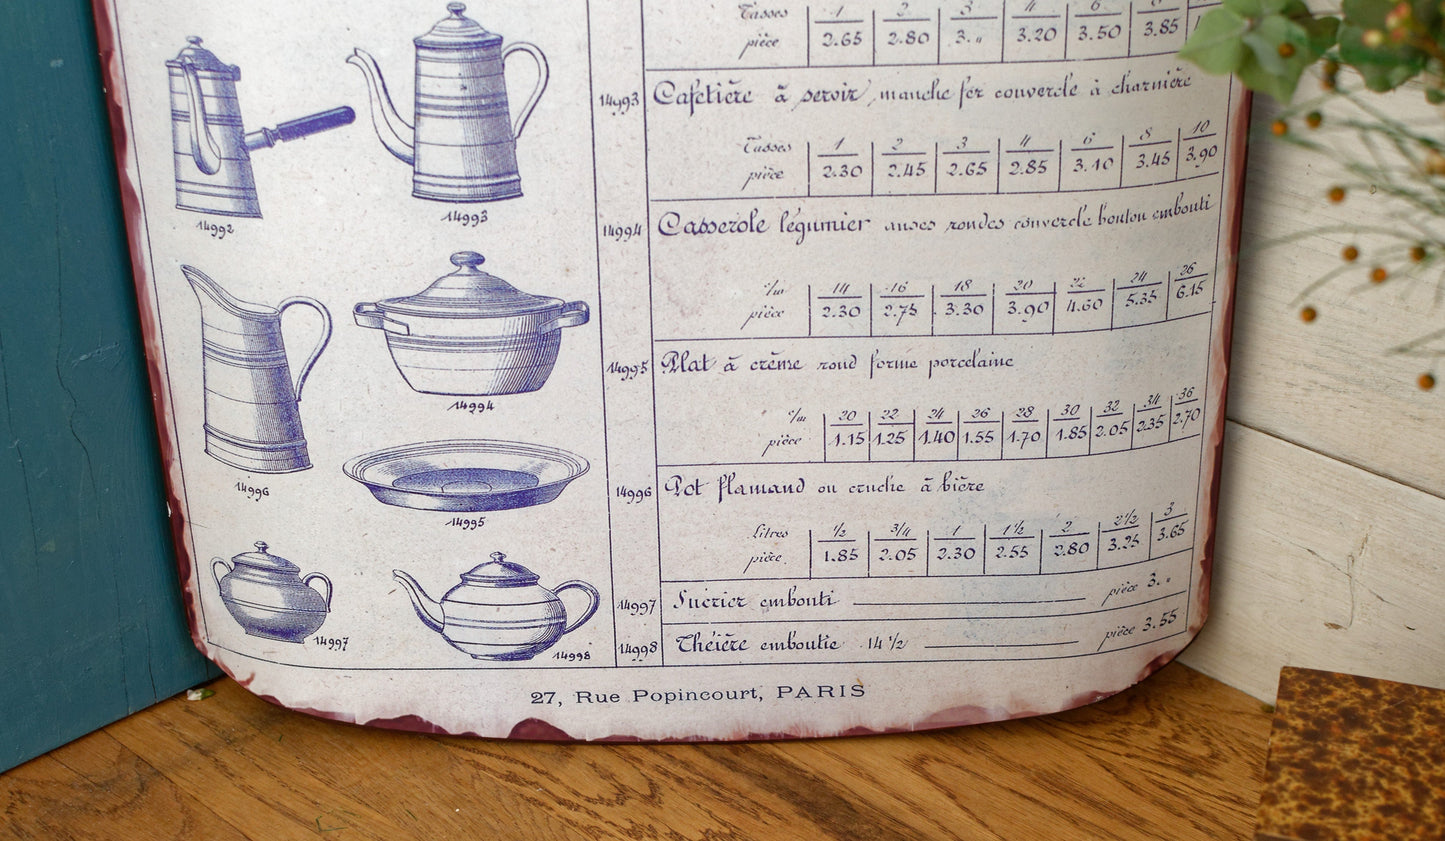 Tasses 1 2 3 4 6 8
pièce 2.65 2.80 3.„ 3.20 3.50 3.85
14993 Cafetière à servir, manche fer couvercle à charnière
Tasses 1 2 3 4 6 8 10
pièce 2.30 2.45 2.65 2.85 3.10 3.45 3.90
14994 Casserole légumier anses rondes couvercle bouton embouti
c/m 14 16 18 20 22 24 26
pièce 2.30 2.75 3.30 3.90 4.60 5.35 6.15
14995 Plat à crème rond forme porcelaine
c/m 20 22 24 26 28 30 32 34 36
pièce 1.15 1.25 1.40 1.55 1.70 1.85 2.05 2.35 2.70
14996 Pot flamand ou cruche à bière
Litres 1/2 3/4 1 1 1/2 2 2 1/2 3
pièce. 1.85 2.05 2.30 2.55 2.80 3.25 3.65
14997 Sucrier embouti pièce 3.„
14998 Théière emboutie 14 1/2 pièce 3.55
14992
14993
14994
14996
14995
14997
14998
27, Rue Popincourt, PARIS